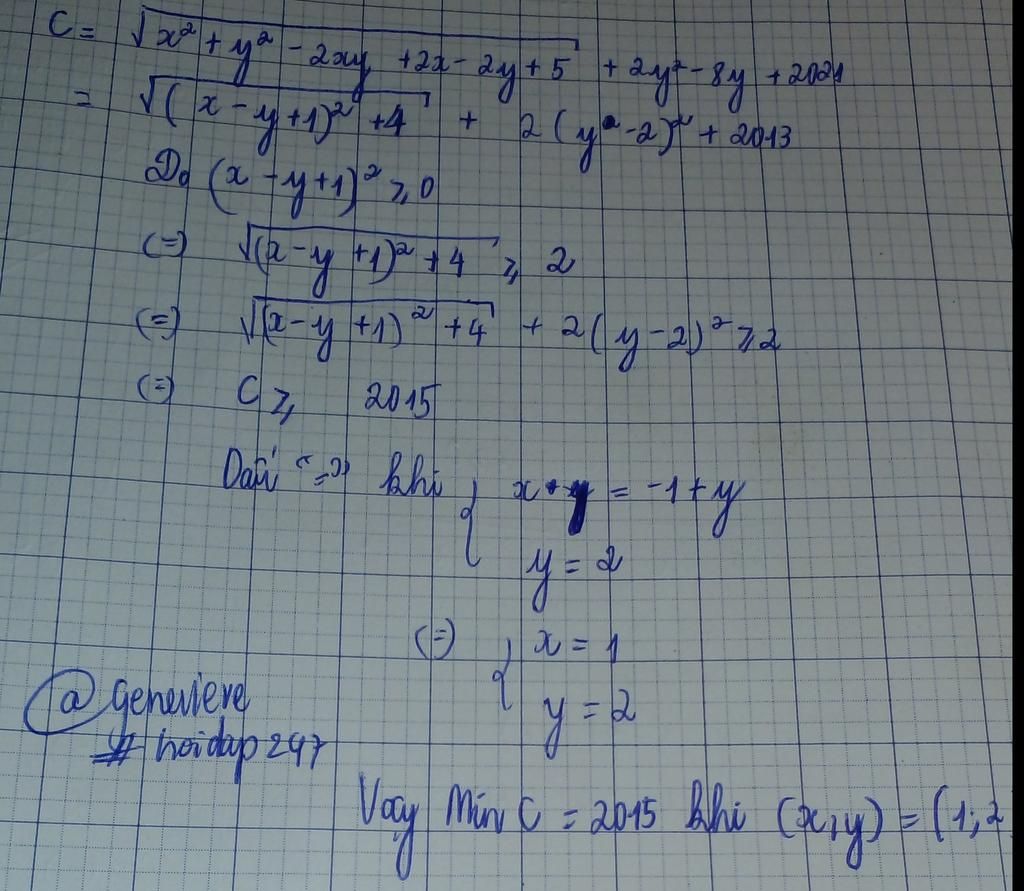 C = √(x² + y² - 2xy + 2x - 2y + 5) + 2y² - 8y + 2021
= √((x - y + 1)² + 4) + 2(y - 2)² + 2013
Do (x - y + 1)² ≥ 0
(=) √((x - y + 1)² + 4) ≥ 2
(=) √((x - y + 1)² + 4) + 2(y - 2)² ≥ 2
(=) C ≥ 2015
Dấu "=" khi { x = -1 + y
y = 2
(=) { x = 1
y = 2
@genevieve
# hoidap247
Vậy Min C = 2015 khi (x, y) = (1; 2